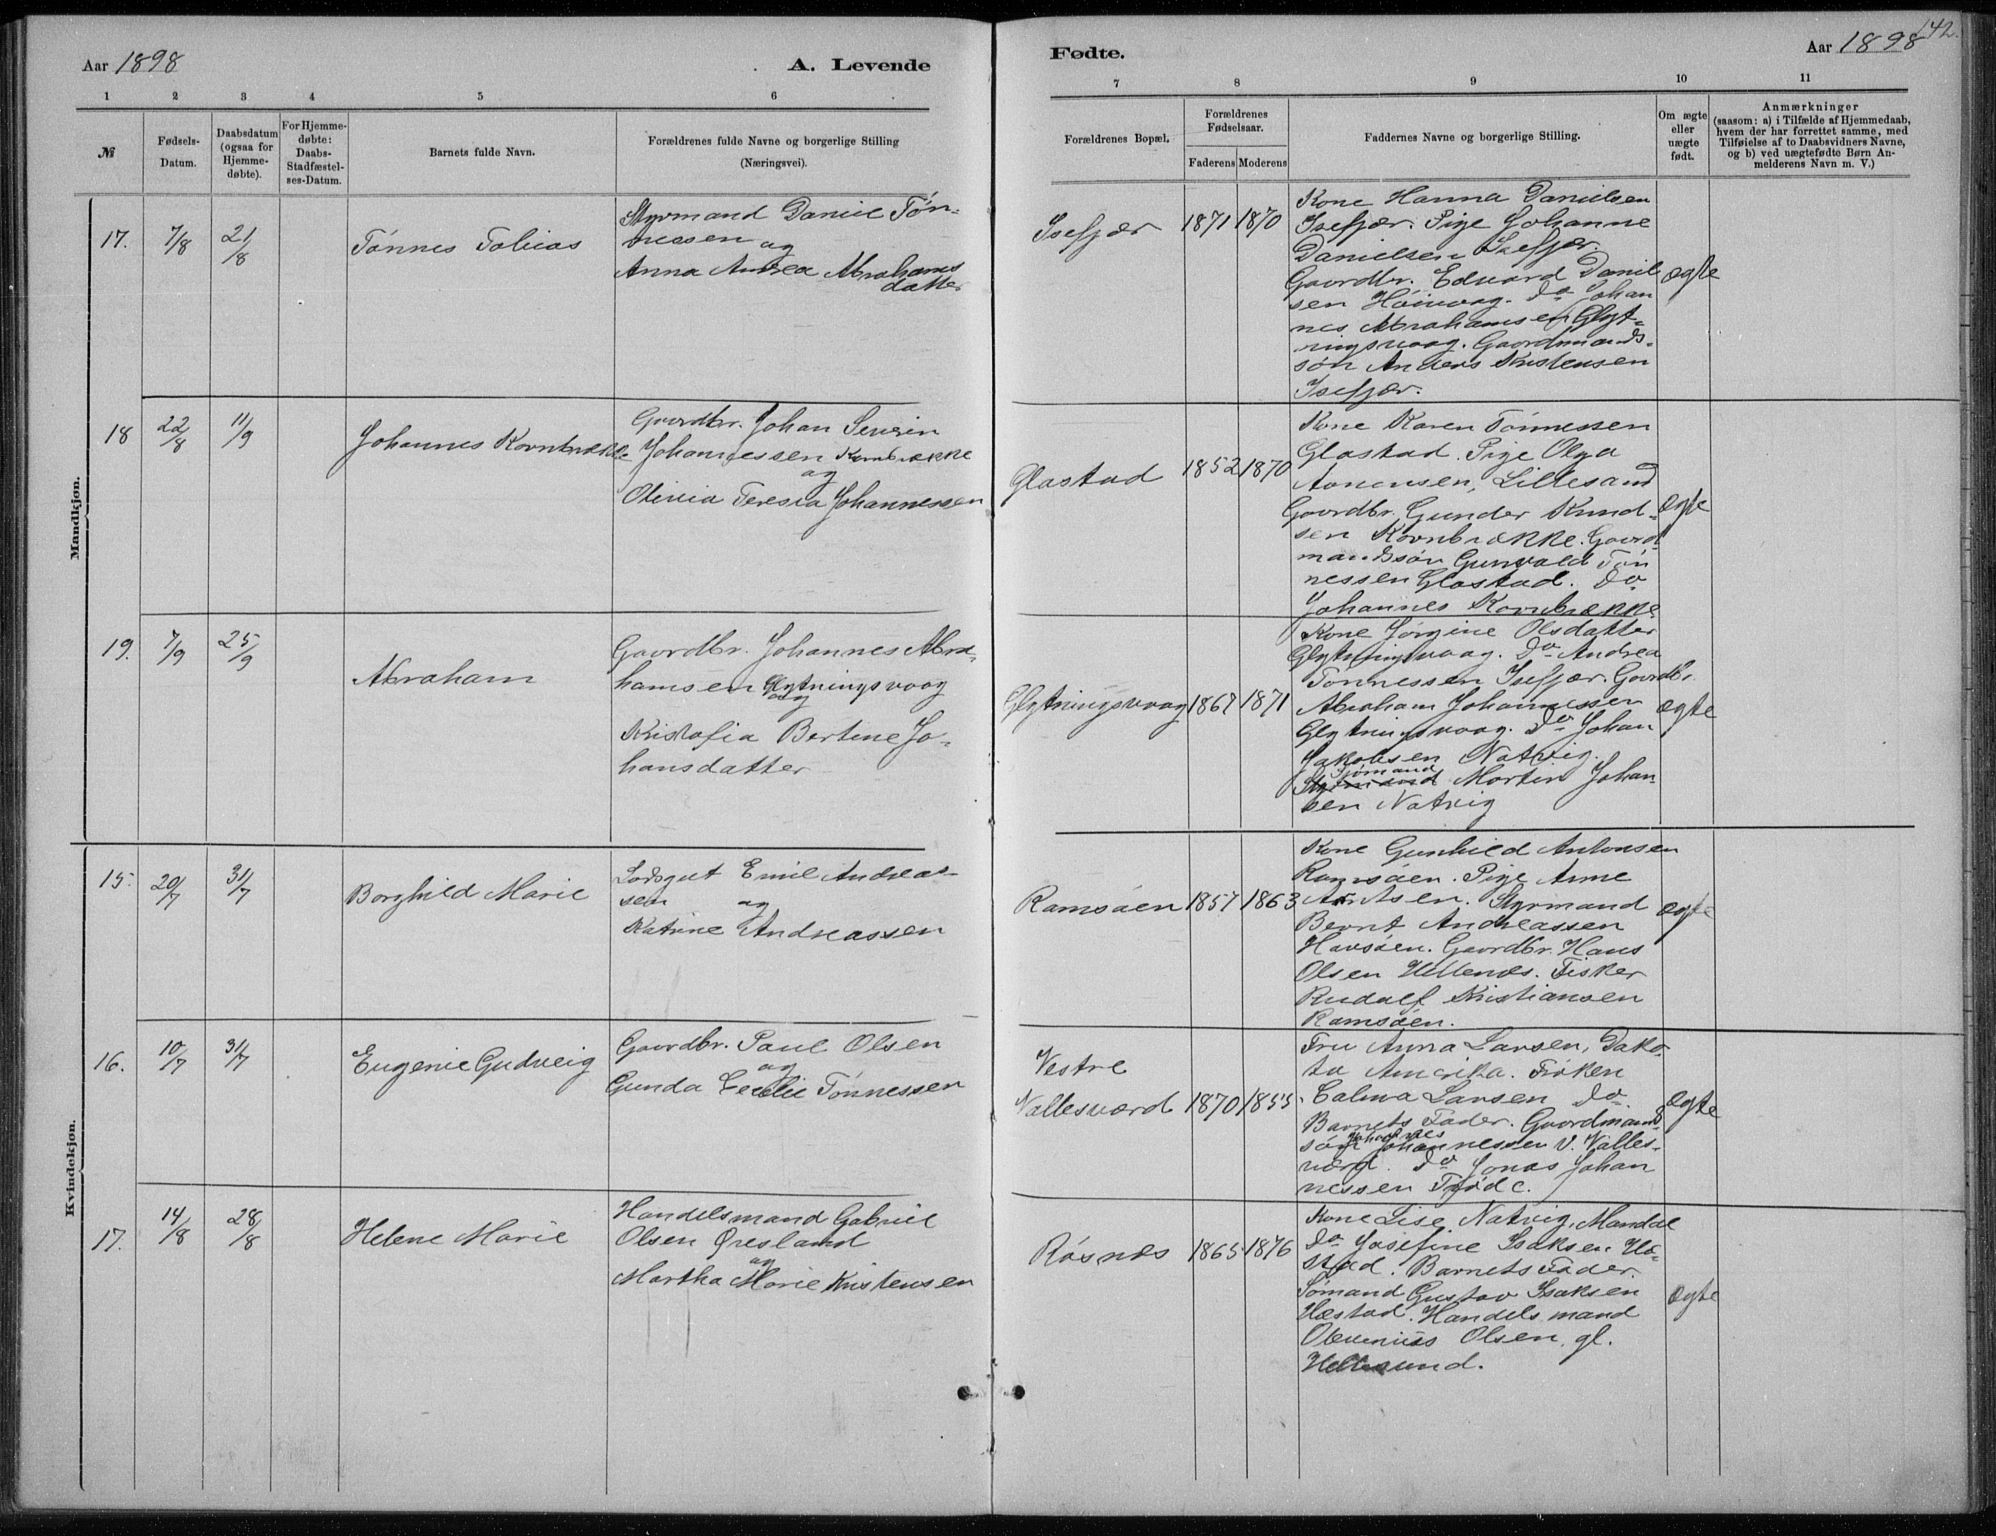 142.
Aar 1898
A. Levende
Fødte.
Aar 1898
1 2 3 4 5 6 7 8 9 10 11
№
Fødsels-
Datum.
Daabsdatum
(ogsaa for
Hjemme-
døbte).
For Hjemme-
døbte:
Daabs-
Stadfæstel-
ses-Datum.
Barnets fulde Navn.
Forældrenes fulde Navne og borgerlige Stilling
(Næringsvei).
Forældrenes Bopæl.
Forældrenes
Fødselsaar.
Faderens Moderens
Faddernes Navne og borgerlige Stilling.
Om ægte
eller
uægte
født.
Anmærkninger
(saasom: a) i Tilfælde af Hjemmedaab,
hvem der har forrettet samme, med
Tilføielse af to Daabsvidners Navne,
og b) ved uægtefødte Børn An-
melderens Navn m. V.)
Mandkjøn.
17. 7/8 21/8
Tønnes Tobias
Styrmand Daniel Tøn-
nessen og
Anna Andrea Abrahams
datter
Isefjær
1871 1870
Kone Hanna Danielsen
Isefjær. Pige Johanne
Danielsen Isefjær.
Gaardbr. Edvard Daniel
sen Høivaag. Do Johan
nes Abrahamsen Glyt-
ningsvaag. Gaardmands-
søn Anders Kristensen
Isefjær.
ægte
18 22/8 11/9
Johannes Kornbrække
Gaardbr. Johan Severin
Johannessen Kornbrække
og
Olivia Teresia Johannessen
Glastad
1852 1870
Kone Karen Tønnessen
Glastad. Pige Olga
Aanensen, Lillesand
Gaardbr. Gunder Knud-
sen Kornbrække. Gaard
mandssøn Gunvald Tøn
nessen Glastad. Do
Johannes Kornbrække
ægte
19. 7/9 25/9
Abraham
Gaardbr. Johannes Abra-
hamsen Glytningsvaag
og
Kristofia Bertine Jo-
hansdatter
Glytningsvaag
1867 1871
Kone Jørgine Olsdatter
Glytningsvaag. Do Andrea
Tønnessen Isefjær. Gaardbr.
Abraham Johannessen
Glytningsvaag. Do Johan
Jakobsen Natvig.
Sjømand
Styrmand Morten Johan-
sen Natvig
ægte
Kvindekjøn.
15. 20/7 31/7
Borghild Marie
Lodsgut Emil Andreas-
sen og
Katrine Andreassen
Ramsøen
1857 1863
Kone Gunhild Antonsen
Ramsøen. Pige Anne
Arntsen. Styrmand
Bernt Andreassen
Havsøen. Gaardbr. Hans
Olsen Hellenes. Fisker
Rudolf Kristiansen
Ramsøen.
ægte
16. 10/7 31/7
Eugenie Gudveig
Gaardbr. Paul Olsen
og
Gunda Cecilie Tønnessen
Vestre
Vallesværd
1870 1855
Fru Anna Larsen, Dako-
ta Amerika. Frøken
Calma Larsen Do.
Barnets Fader. Gaardmands
søn Johannes Johannessen V. Valles-
værd. Do Jonas Johan
nessen Trøde.
ægte
17. 14/8 28/8
Helene Marie
Handelsmand Gabriel
Olsen Øresland
og
Martha Marie Kristensen
Røsnes
1865 1876
Kone Lise Natvig, Mandal
Do Josefine Isaksen Hæ-
stad. Barnets Fader.
Sømand Gustav Isaksen
Hæstad. Handelsmand
Olsen, gl.
Hellesund.
ægte